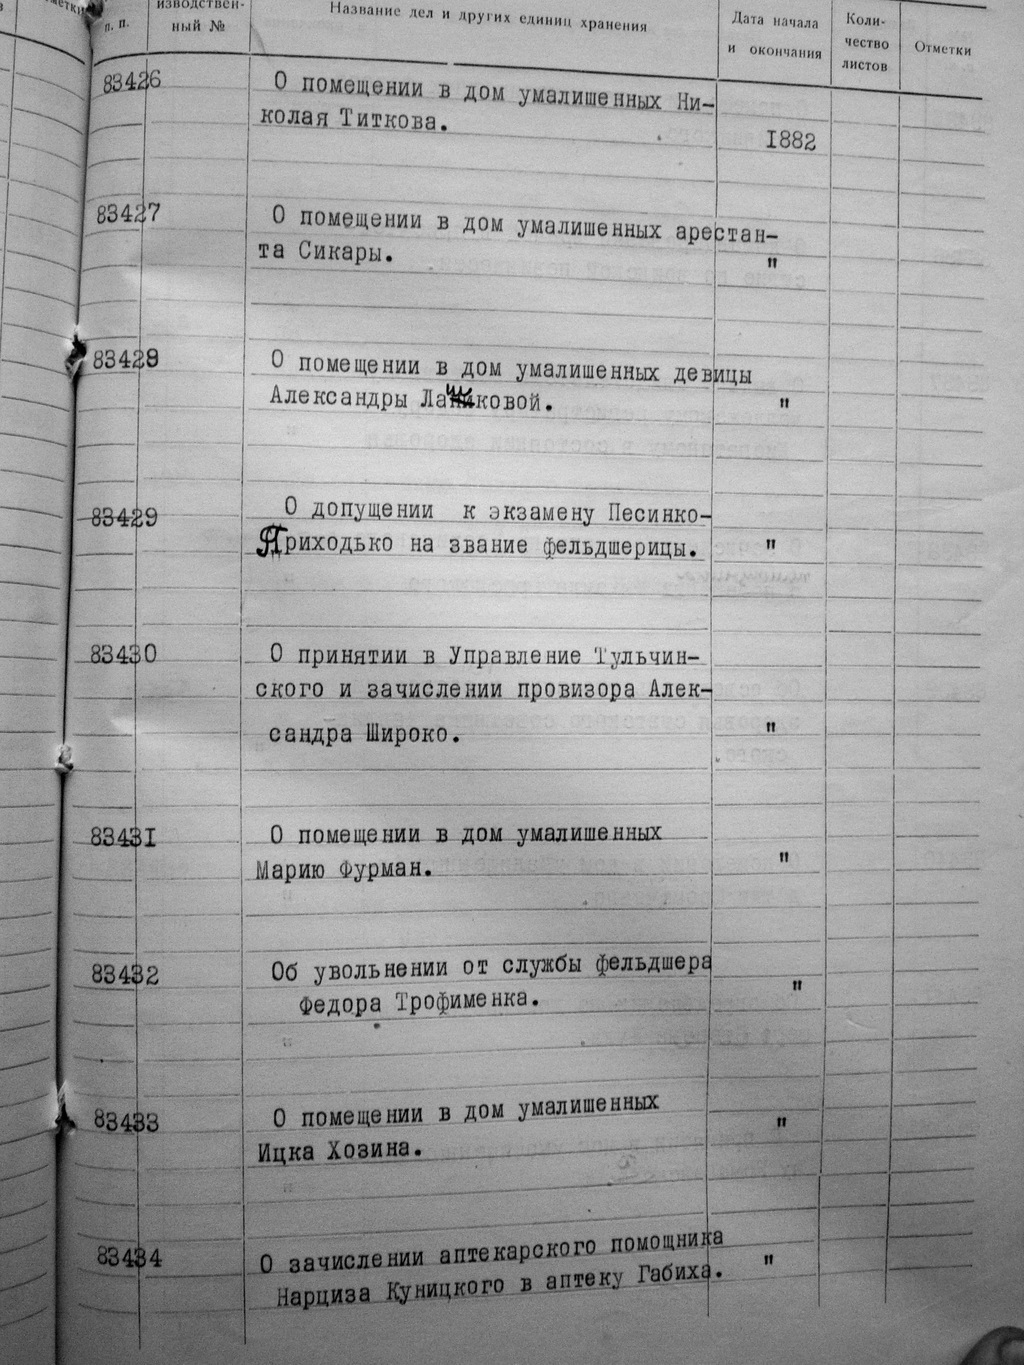 п. п.
изводствен-
ный №
Название дел и других единиц хранения
Дата начала
и окончания
Коли-
чество
листов
Отметки
83426
О помещении в дом умалишенных Ни-
колая Титкова.
1882
83427
О помещении в дом умалишенных арестан-
та Сикары.
"
83428
О помещении в дом умалишенных девицы
Александры Лашковой.
"
83429
О допущении к экзамену Песинко-
Приходько на звание фельдшерицы.
"
83430
О принятии в Управление Тульчин-
ского и зачислении провизора Алек-
сандра Широко.
"
83431
О помещении в дом умалишенных
Марию Фурман.
"
83432
Об увольнении от службы фельдшера
Федора Трофименка.
"
83433
О помещении в дом умалишенных
Ицка Хозина.
"
83434
О зачислении аптекарского помощника
Нарциза Куницкого в аптеку Габиха.
"